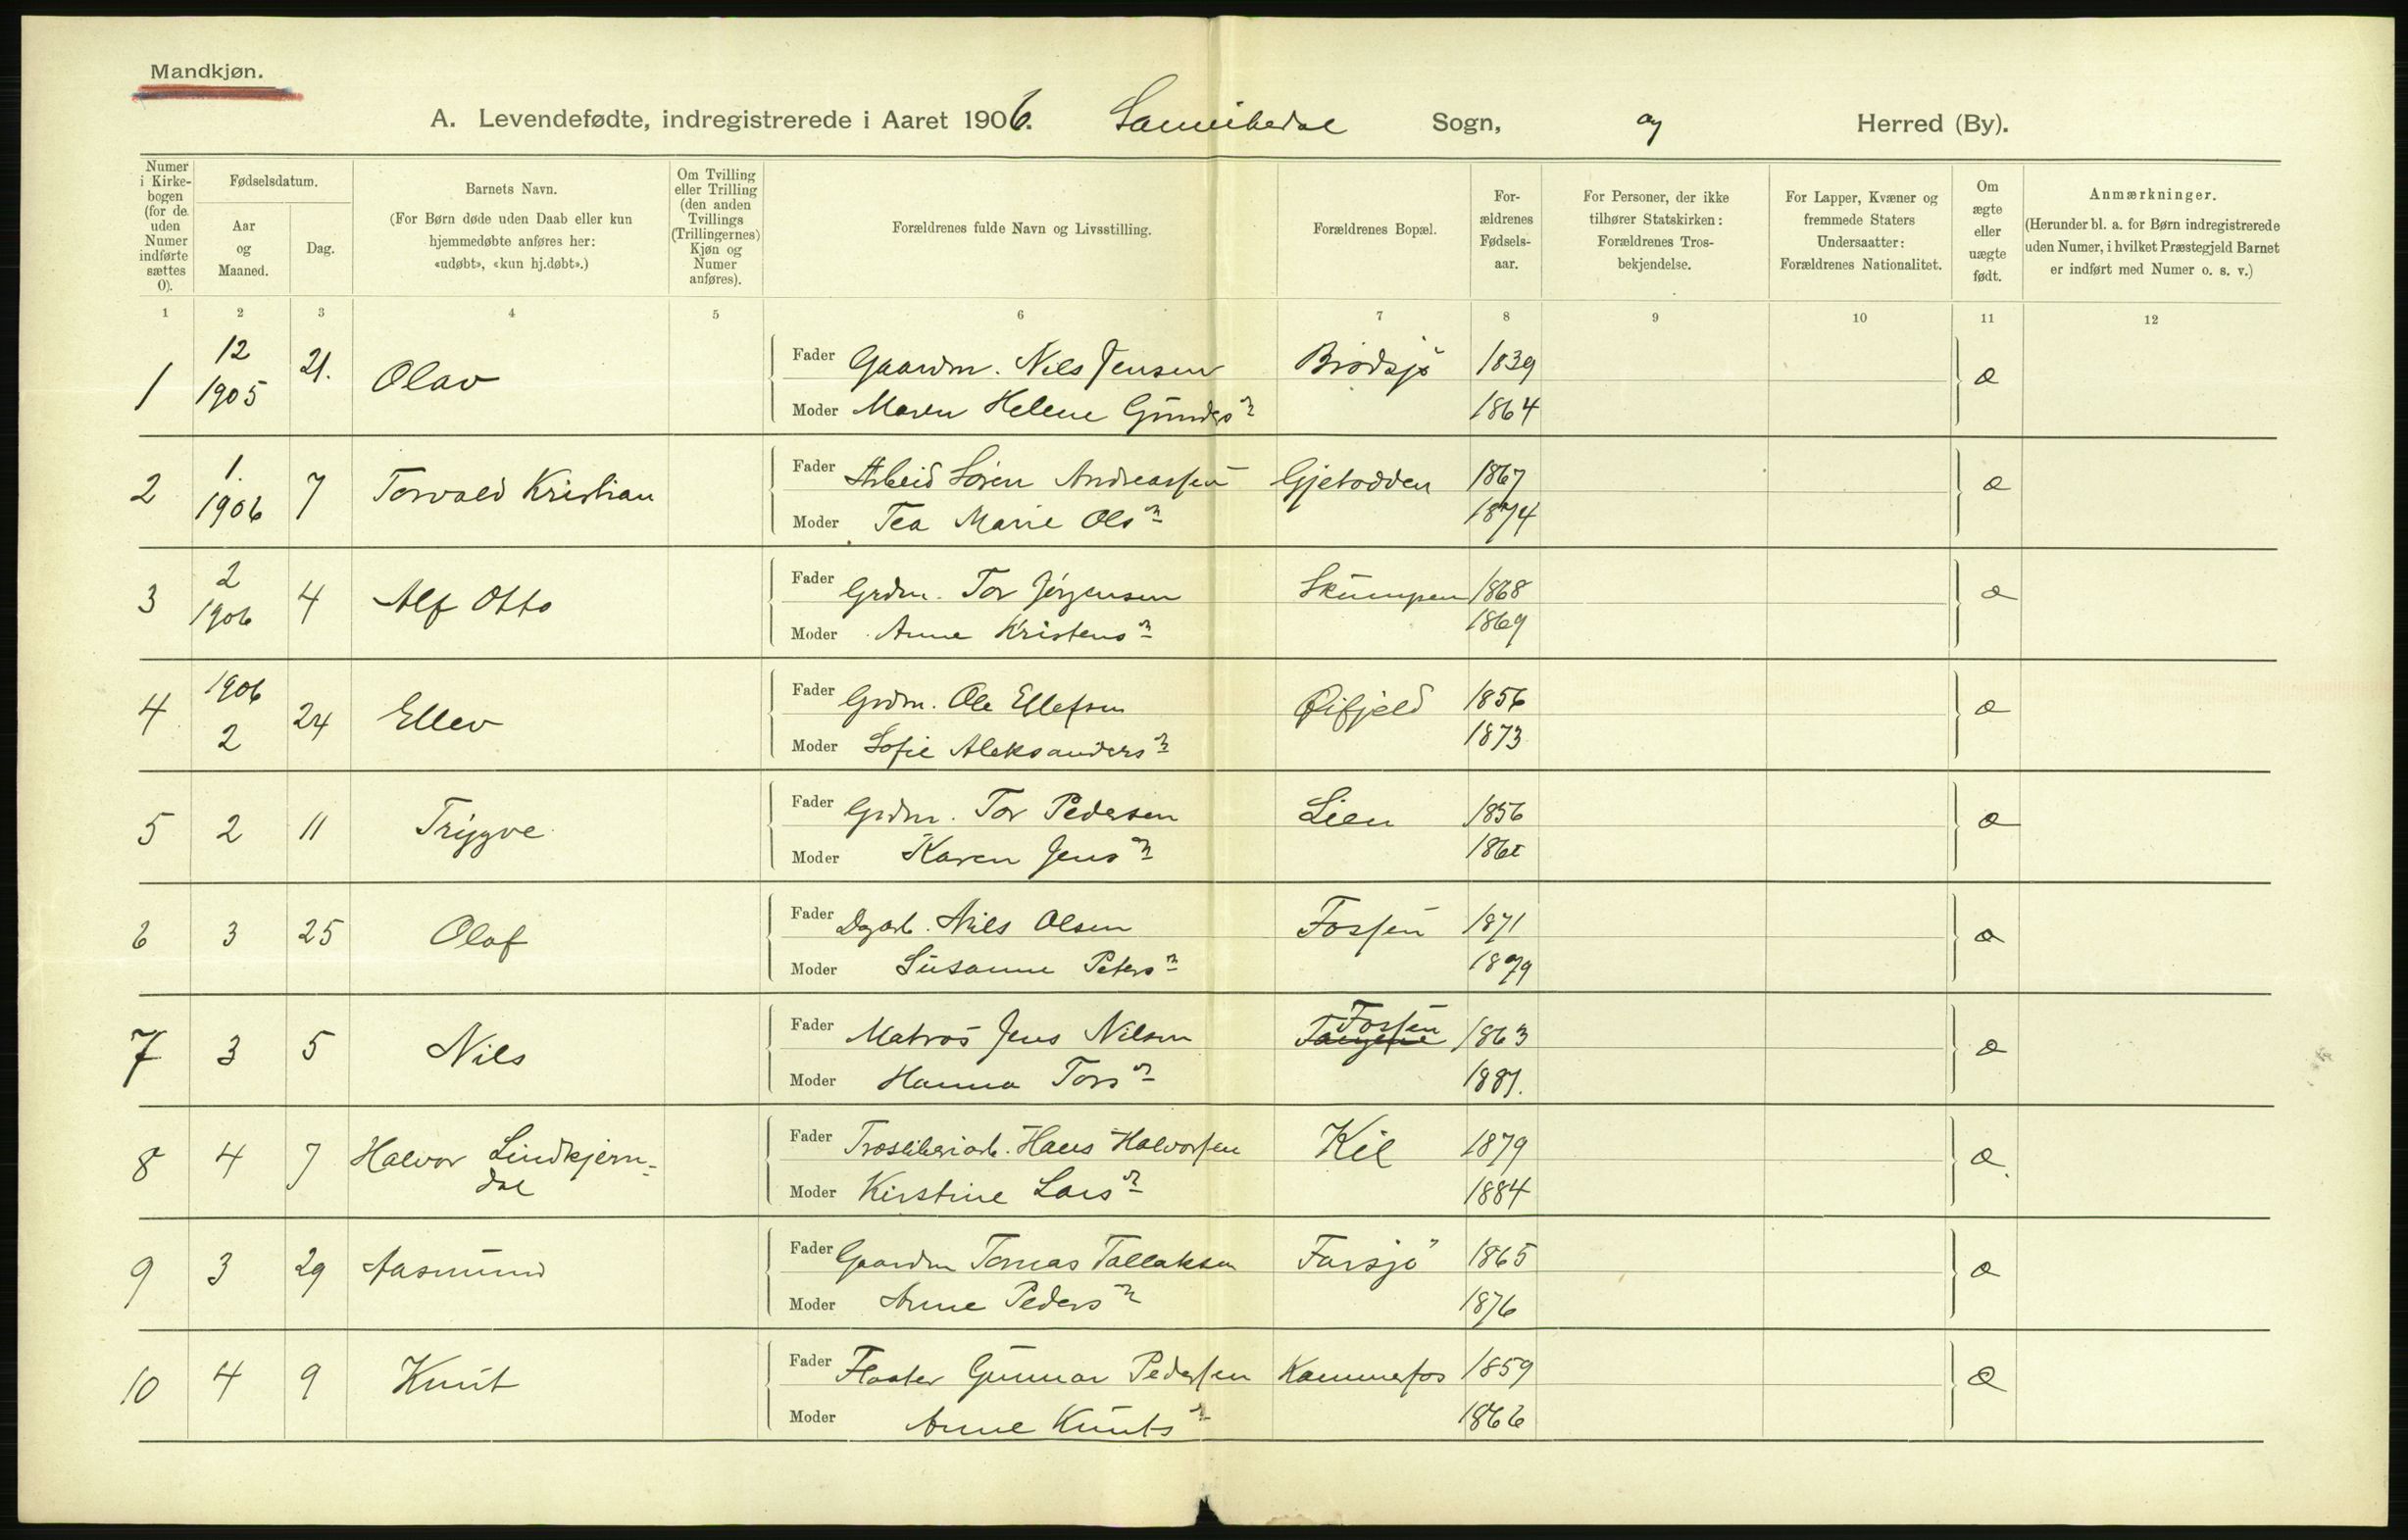 Mandkjøn.
A. Levendefødte, indregistrerede i Aaret 1906. Sannikedal Sogn, og Herred (By).
Numer i Kirke-bogen (for de uden Numer indførte sættes 0).
Fødselsdatum.
Aar og Maaned.
Dag.
Barnets Navn.
(For Børn døde uden Daab eller kun hjemmedøbte anføres her: «udøbt», «kun hj.døbt».)
Om Tvilling eller Trilling (den anden Tvillings (Trillingernes) Kjøn og Numer anføres).
Forældrenes fulde Navn og Livsstilling.
Forældrenes Bopæl.
For-ældrenes Fødsels-aar.
For Personer, der ikke tilhører Statskirken: Forældrenes Tros-bekjendelse.
For Lapper, Kvæner og fremmede Staters Undersaatter: Forældrenes Nationalitet.
Om ægte eller uægte født.
Anmærkninger.
(Herunder bl. a. for Børn indregistrerede uden Numer, i hvilket Præstegjeld Barnet er indført med Numer o. s. v.)
1 2 3 4 5 6 7 8 9 10 11 12
1 12 1905 21. Olav Fader Gaardm. Nils Jensen Brødsjø 1839 æ
Moder Maren Helene Gunders n 1864
2 1. 1906 7 Torvald Kristian Fader Arbeid Søren Andreassen Gjetodden 1867 æ
Moder Tea Marie Ols n 1874
3 2 1906 4 Alf Otto Fader Grdm. Tor Jørgensen Skumpen 1868 æ
Moder Anne Kristens n 1869
4 1906 2 24 Ellev Fader Grdm. Ole Ellefsen Øifjeld 1856 æ
Moder Sofie Aleksanders n 1873
5 2 11 Trygve Fader Grdm. Tor Pedersen Lien 1856 æ
Moder Karen Jens n
6 3 25 Olaf Fader Dagarb. Nils Olsen Fossen 1871 æ
Moder Susanne Peters n 1879
7 3 5 Nils Fader Matros Jens Nilsen Fossen 1863 æ
Moder Hanna Tors n 1881.
8 4 7 Halvor Lindkjern-dal Fader Træsliberiarb. Hans Halvorsen Kil 1879 æ.
Moder Kirstine Lars n 1884
9 3 29 Aasmund Fader Gaardm Tomas Tallaksen Farsjø 1865 æ
Moder Anne Peders n 1876
10 4 9 Knut Fader Fløater Gunnar Pedersen Kammerfos 1859 æ
Moder Anne Knuts n 1866